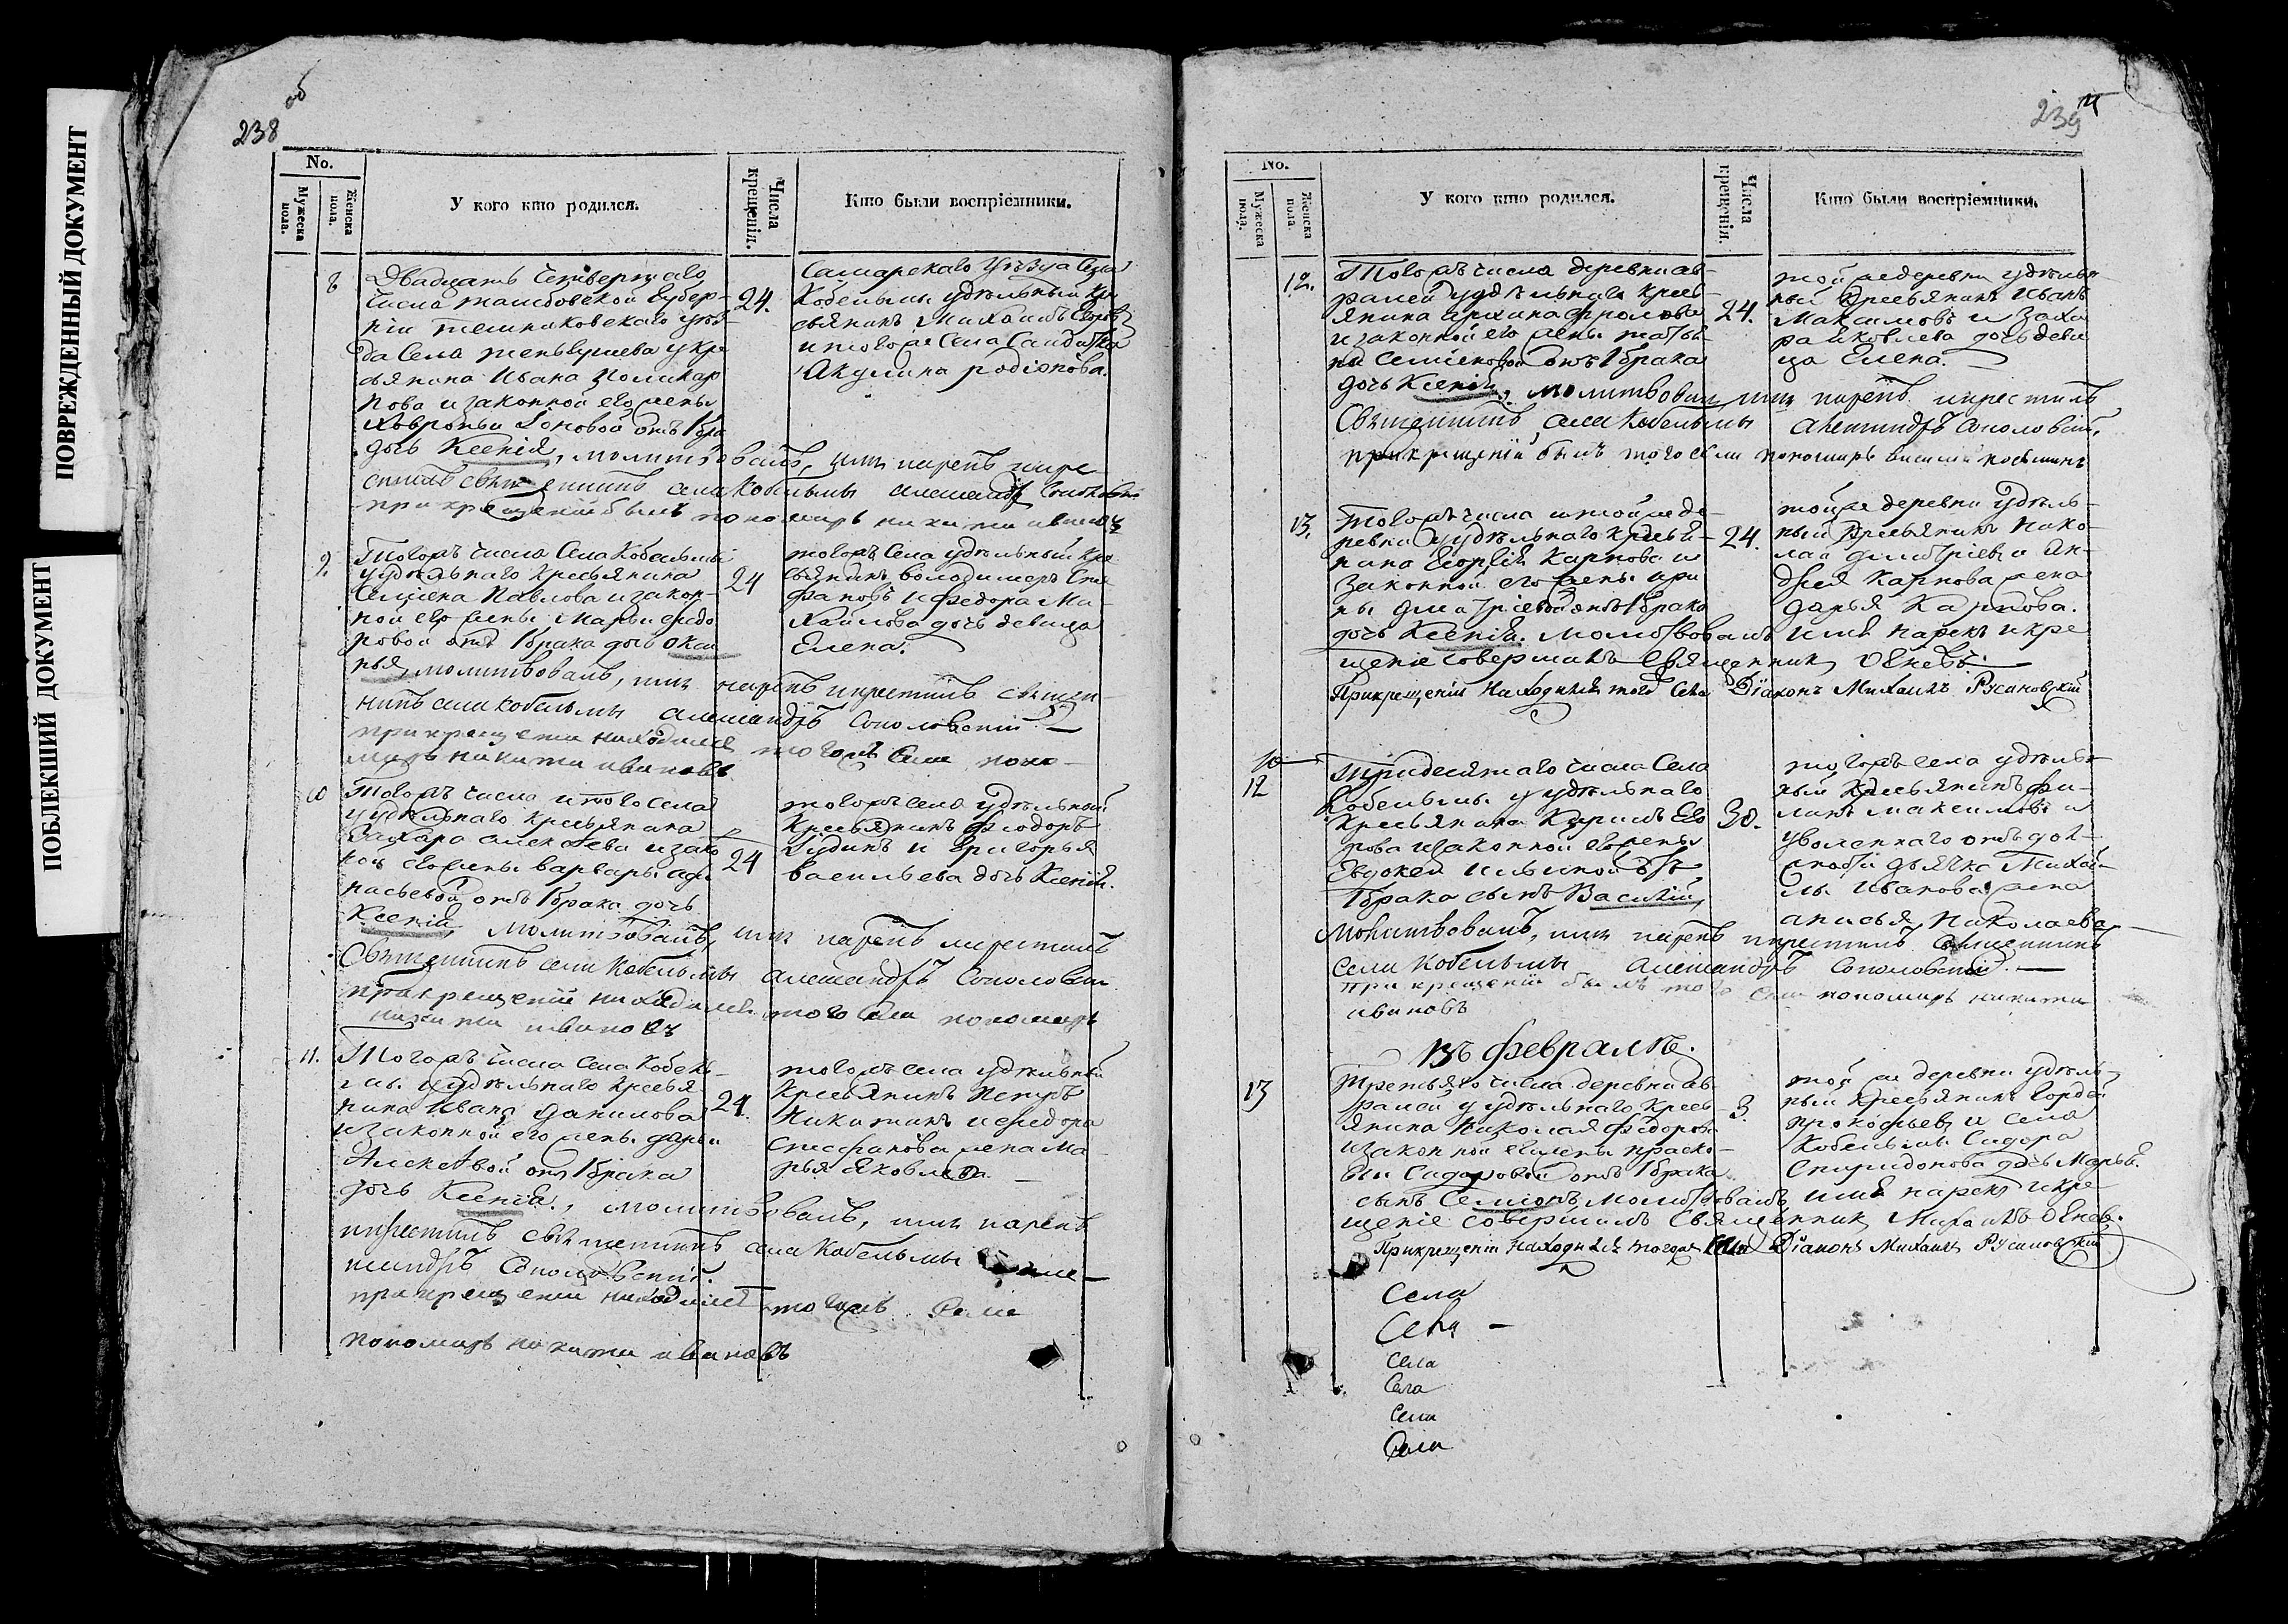 ПОВРЕЖДЕННЫЙ ДОКУМЕНТ
ПОБЛЕКШИЙ ДОКУМЕНТ
об
238
No.
Мужеска пола.
Женска пола.
У кого кто родился.
Числа крещенія.
Кто были воспріемники.
8
Двадцать четвертаго
числа тамбовской губер-
ніи темниковскаго уез-
да села
янина Ивана
пова и законной его жены
Ховроньи отъ 1 бра
дочь Ксенія, молитвовалъ, имя нарекъ и кре
стилъ священникъ села Кобельмы александръ Соколовскій
при крещеніи былъ пономарь никита ивановъ
24.
Самарскаго уезда села
Кобельмы удѣльный кре
сьянинъ Михаилъ
и того же села
Акулина родіонова.
9.
Того жъ числа Села Кобельмы
у удѣльнаго кресьянина
Семена Павлова и закон-
ной его жены Марьи федо
ровой отъ 1 брака дочь Окси
нья, молитвовалъ, имя нарекъ и крестилъ священ-
никъ села кобельмы александръ Соколовскій
при крещении находился того жъ села поно-
марь никита ивановъ
24
того жъ села удѣльный кре
сьянинъ володимеръ Сте
фановъ и федора Ми-
хайлова дочь девица
Елена.
10
Того жъ числа и того села
у удѣльнаго кресьянина
Захара алексѣева и зако
ной его жены варвары афа
насьевой отъ 1 брака дочь
Ксенія, молитвовалъ, имя нарекъ и крестилъ
Священникъ села Кобельмы александръ Соколовскій
при крещеніи находился того села пономарь
никита ивановъ
24
того жъ села удѣльный
Кресьянинъ Фіодоръ
Юдинъ и Григорья
васильева дочь Ксенія.
11.
Того жъ числа села Кобель-
мы у удѣльнаго кресья-
нина Ивана Данилова
и законной его жены дарьи
Алексѣевой отъ 1 брака
дочь Ксенія, молитвовалъ, имя нарекъ
и крестилъ священникъ села Кобельмы але-
ксандръ Соколовскій.
при крещении находился того жъ села
пономарь никита ивановъ
24.
того жъ села удѣльный
Кресьянинъ Петръ
Никитинъ и федора
Стефанова жена Ма-
рья Яковлева
239
No.
Мужеска пола.
Женска пола.
У кого кто родился.
Числа крещенія.
Кто были воспріемники.
12.
Того жъ числа деревни ав-
ралей у удѣльнаго кресь-
янина архипа фролова
и законной его жены татья-
ны Семіоновой отъ 1 брака
дочь Ксенія, молитвовалъ, имя нарекъ и крестилъ
Священникъ села Кобельмы александръ Соколовскій.
при крещеніи былъ того села пономарь василий косьминъ
24.
той же деревни удѣльн
ный Кресьянинъ Иванъ
Максимовъ и Заха
ра яковлева дочь деви
ца Елена.
13.
Того жъ числа и той же де-
ревни у удѣльнаго кресья-
нина Георгія Карпова и
законной его жены ири
ны Дмитріевой отъ 1 брака
дочь Ксенія. молитвовалъ имя нарекъ и кре
щеніе совершалъ Священникъ Огневъ.
При крещеніи находился того села Діаконъ Михаилъ Русановскій
24.
той же деревни удѣль-
ный Кресьянинъ Нико-
лай Димитріевъ и Ан-
дрея Карпова жена
дарья Карпова.
12
Тридесятаго числа Села
Кобельмы у удѣльнаго
кресьянина Кирила Его
рова и законной его жены
Евдокеи Ильиной отъ
1 брака сынъ Василій,
Молитвовалъ, имя нарекъ и крестилъ священникъ
села Кобельмы александръ Соколовскій.
При крещеніи былъ того села пономарь никита
ивановъ
30.
того жъ села удѣльн
ный Кресьянинъ Фи-
липъ Максимовъ и
уволеннаго отъ дол-
жности дьячка Михай-
лы Иванова жена
анисья Николаева
въ Февралѣ.
13
Третьяго числа деревни ав
ралей у удѣльнаго кресь-
янина Николая Федорова
и законной его жены праско-
вьи Сидоровой отъ 1 брака
сынъ Семіонъ, молитвовалъ имя нарекъ и кре
щеніе совершилъ Священникъ Михаилъ Огневъ.
При крещеніи находился того же села Діаконъ Михаилъ Русановскій
3.
той же деревни удѣль-
ный Кресьянинъ Гордей
прокофьевъ и села
Кобельмы Сидора
Спиридонова дочь Марья.
Села
Села
Села
Села
Села
Села